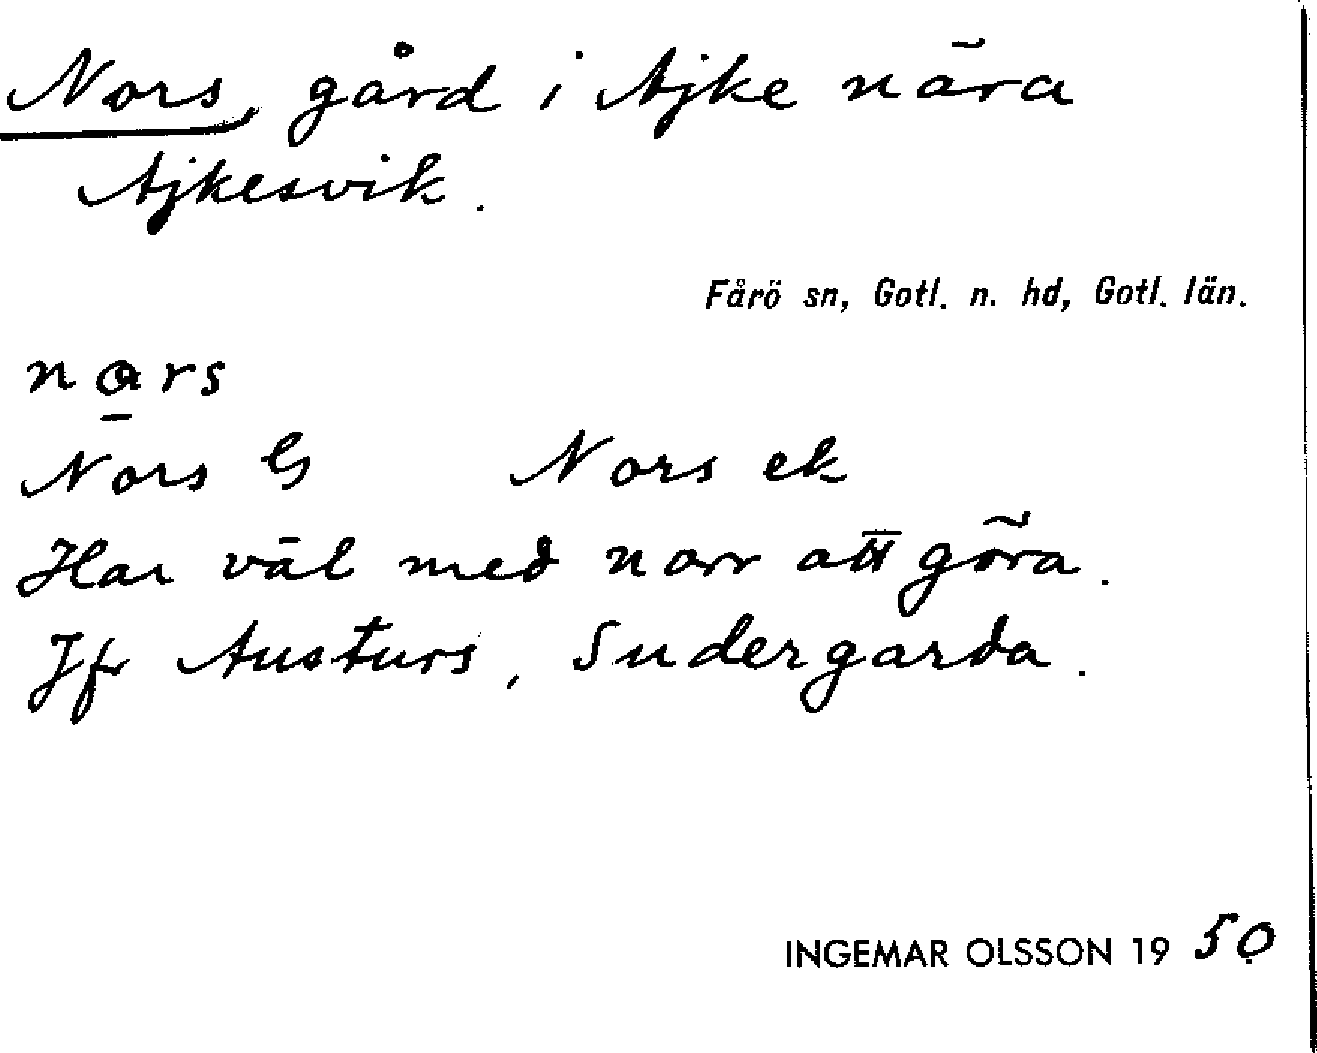 Nors, gård i Ajke nära
Ajkesvik.
Fårö sn, Gotl. n. hd, Gotl. län.
nɑrs
Nors G Nors ek
Har väl med norr att göra.
Jfr Austurs, Sudergarda.
INGEMAR OLSSON 19 50